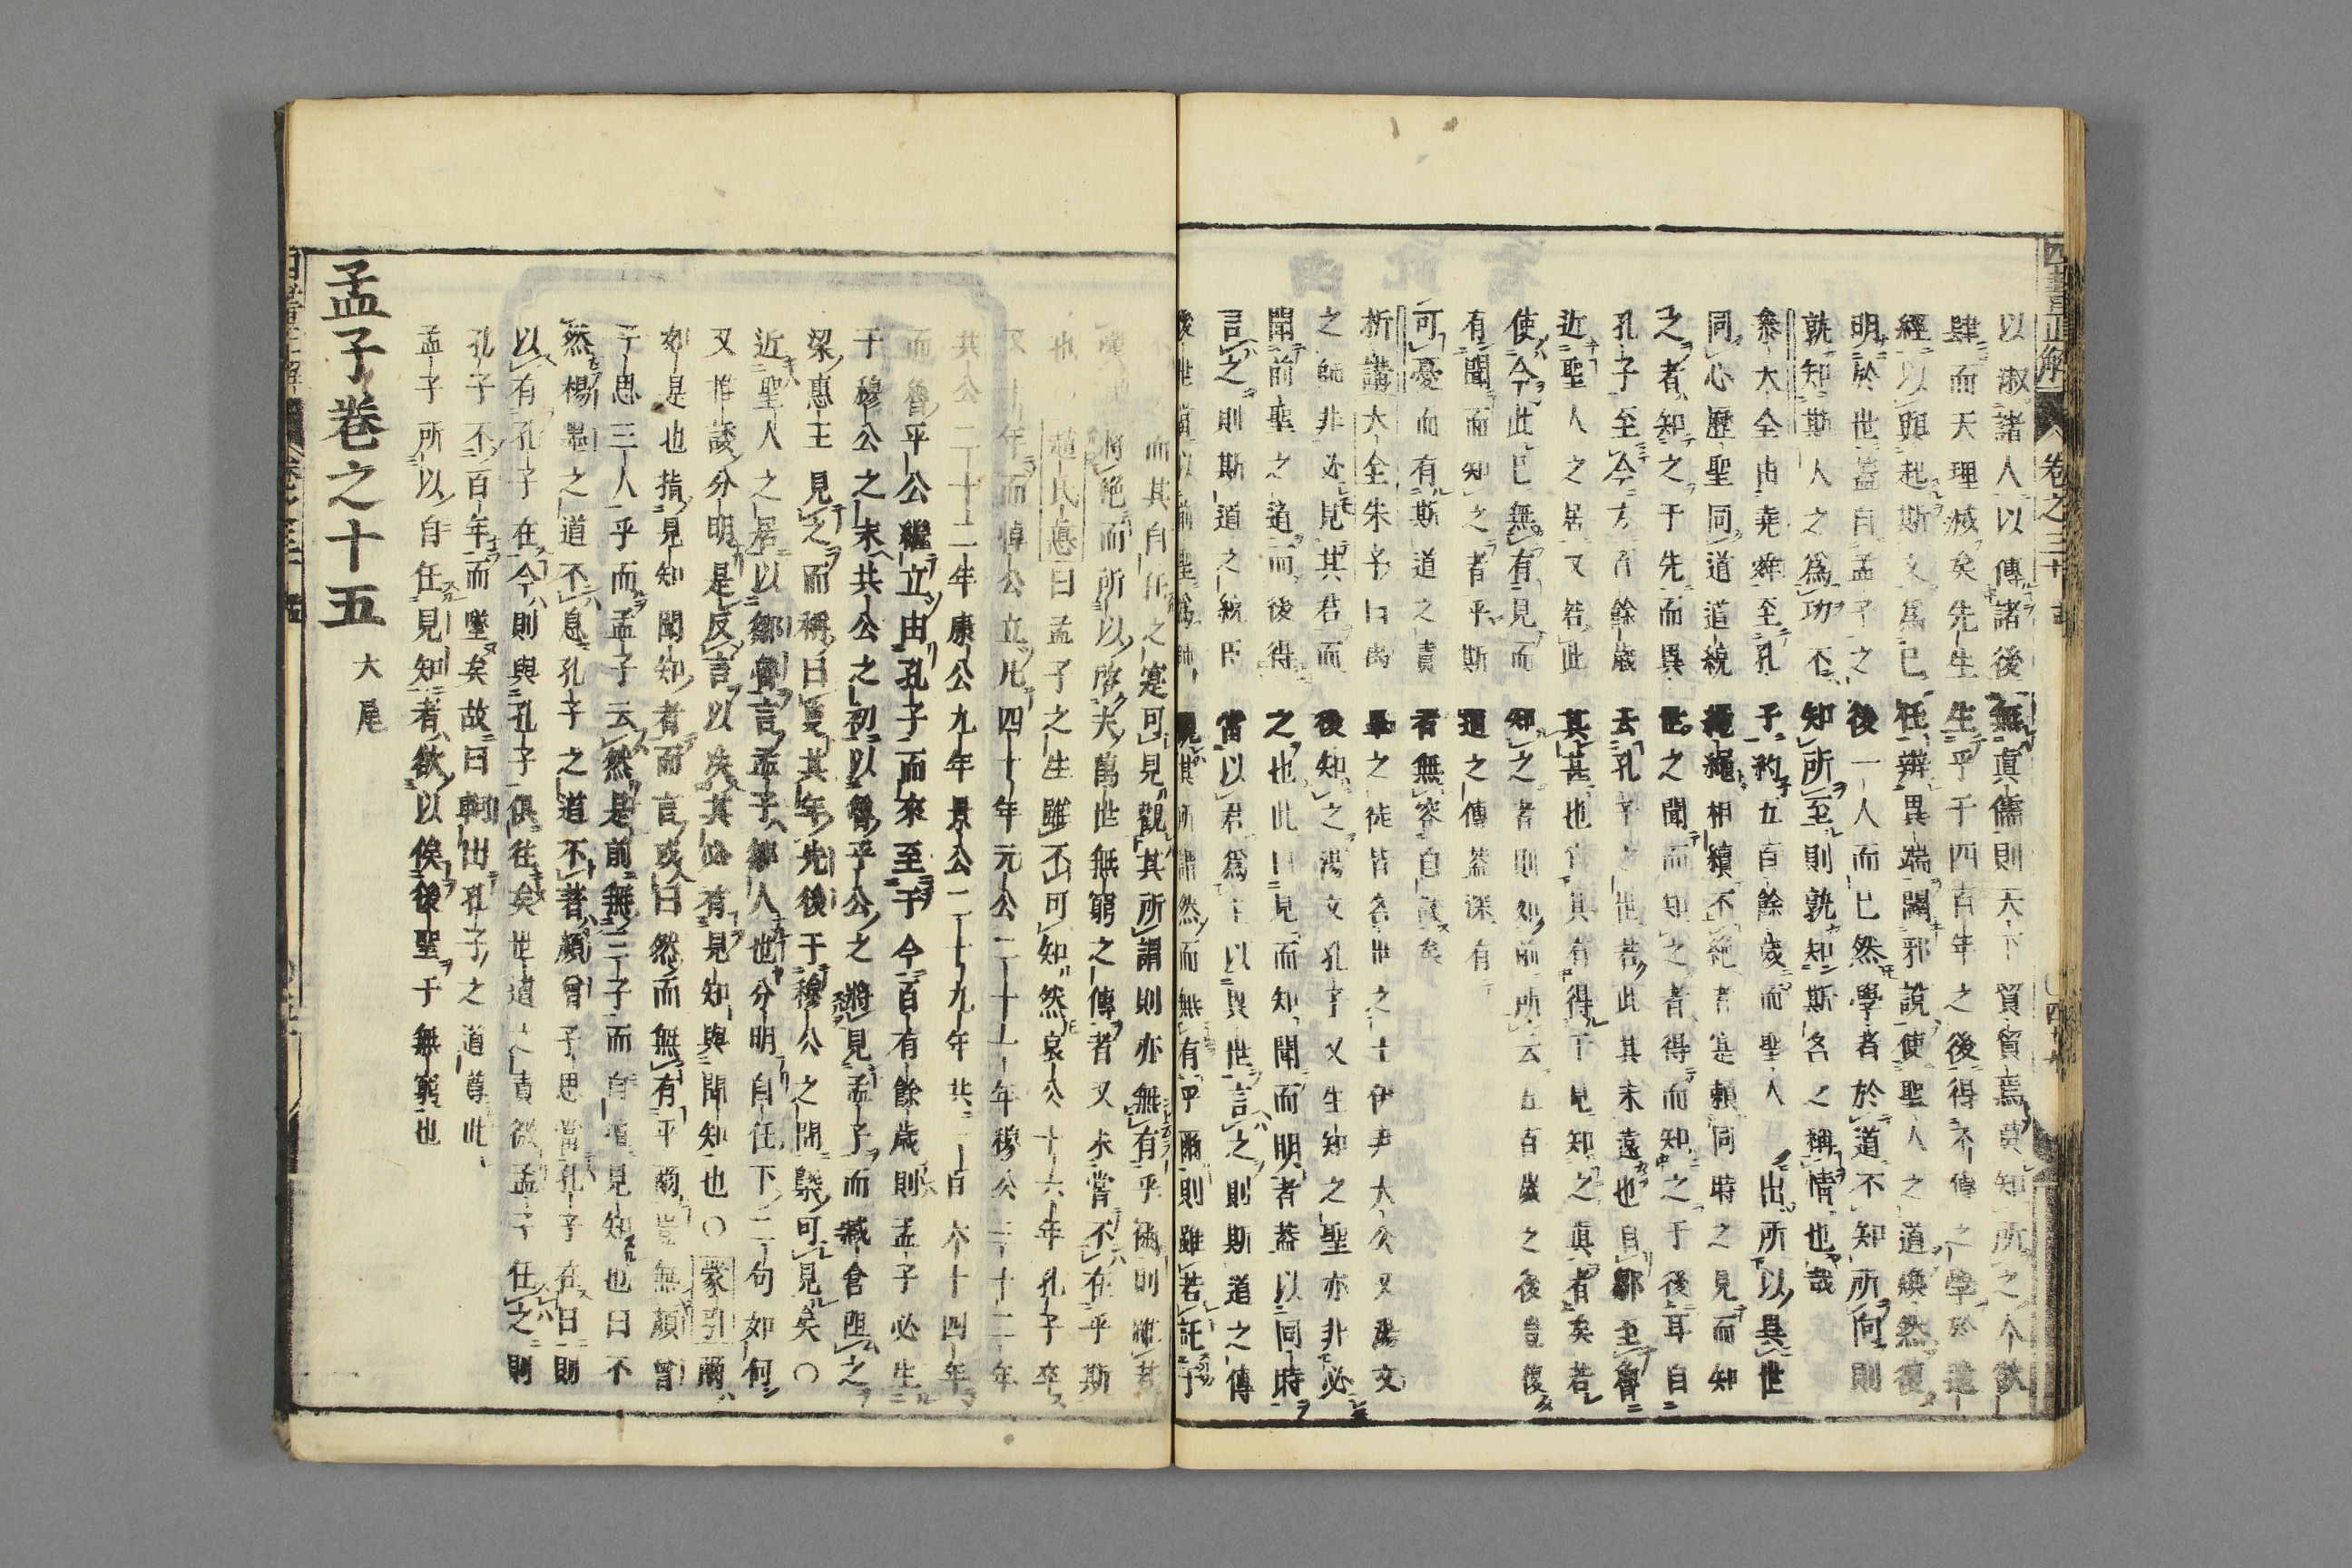 四書正解 卷之三十
以淑諸人以傳諸後無真儒則天下貿貿焉莫知所之人欲
肆而天理滅矣先生生乎千四百年之後得不傳之學於遺
經以興起斯文為己任辨異端闢邪說使聖人之道煥然復
明於世蓋自孟子之後一人而已然學者於道不知所向則
孰知斯人之為功不知所至則孰知斯名之稱情也哉
叅大全由堯舜至孔子約五百餘歲而聖人出所以異世
同心歷聖同道道統繩繩相續不絕者寔賴同時之見而知
之者知之于先而異世之聞而知之者得而知之于後耳自
孔子至今方百餘歲去孔子之世若此其未遠也自鄒至魯
近聖人之居又若此其甚也宜其有得于見知之真者矣若
使今此已無有見而知之者則如前所云五百歲之後豈復
有聞而知之者乎斯道之傳蓋深有
可憂而有斯道之責者無容自諉矣
析講大全朱子曰禹皋之徒皆名世之士伊尹太公又湯文
之師非必見其君而後知之湯文孔子又生知之聖亦非必
聞前聖之道而後得之也此曰見而知聞而明者蓋以同時
言之則斯道之統臣當以君為主以異世言之則斯道之傳
後世當以前聖為師
而其自任之寔可見觀其所謂則亦無有乎爾則雖若
將絕而所以啓夫萬世無窮之傳者又未嘗不在乎斯
也 趙氏惪曰孟子之生雖不可知然哀公十六年孔子卒
又十年而悼公立凡四十年元公二十一年穆公三十二年
共公二十二年康公九年景公二十九年共一百六十四年
而魯平公繼立由孔子而來至于今百有餘歲則孟子必生
于穆公之末共公之初以魯平公之將見孟子而臧倉阻之
梁惠王見之而稱曰叟其年先後于穆公之間槩可見矣○
近聖人之居以鄒魯言孟子鄒人也分明自任下二句如何
又推諉分明是反言以決其必有見知與聞知也○蒙引爾
如是也指見知聞知者而言或曰然而無有乎爾豈無顏曾
子思三人乎而孟子云然是前無三子而自擅見知也曰不
然楊墨之道不息孔子之道不著顏曾子思當孔子在日則
以有孔子在今則與孔子俱徃矣世道之責微孟子任之則
孔子不百年而墜矣故曰軻出孔子之道尊此
孟子所以自任見知者欲以俟後聖于無窮也
孟子卷之十五 大尾